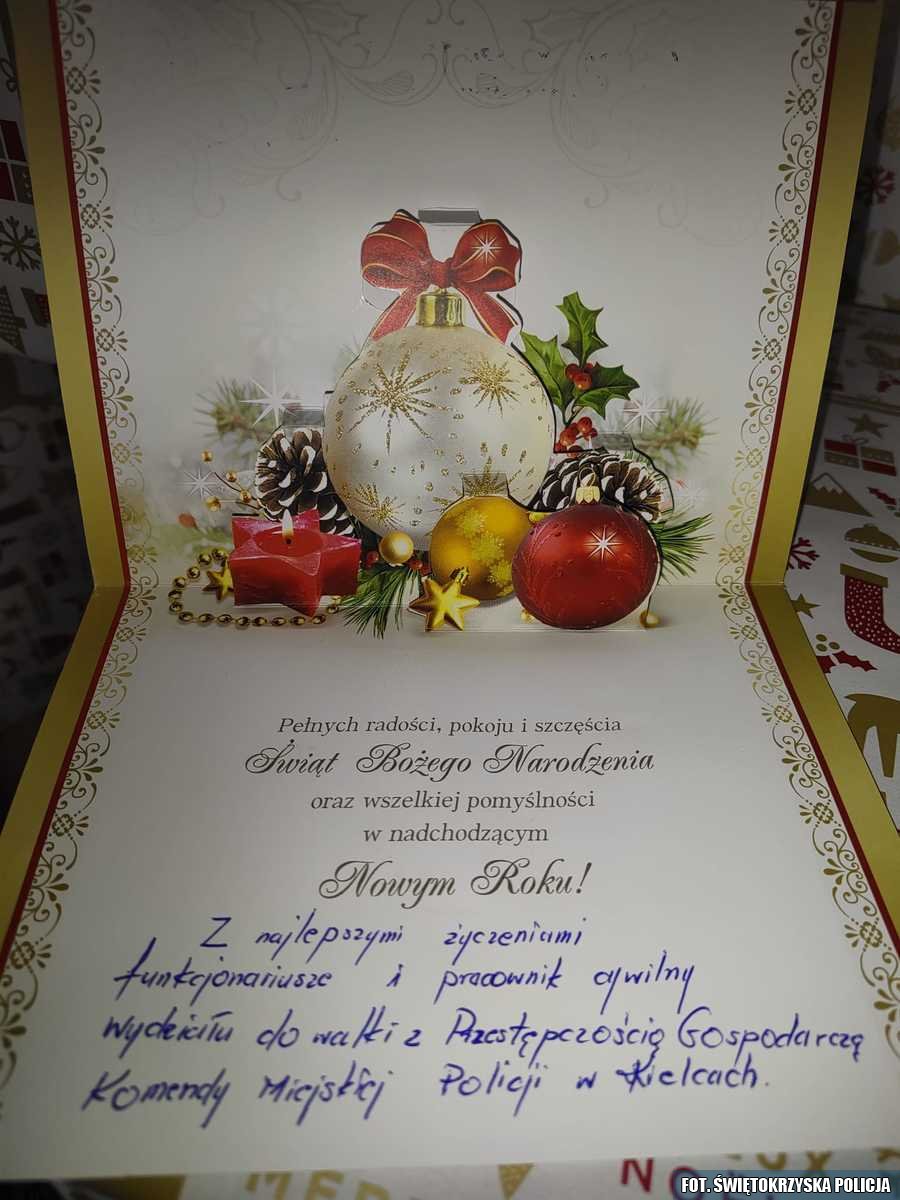 Pełnych radości, pokoju i szczęścia
Świąt Bożego Narodzenia
oraz wszelkiej pomyślności
w nadchodzącym
Nowym Roku!
Z najlepszymi życzeniami
funkcjonariusze i pracownik cywilny
Wydziału do walki z Przestępczością Gospodarczą
Komendy Miejskiej Policji w Kielcach.
FOT. ŚWIĘTOKRZYSKA POLICJA